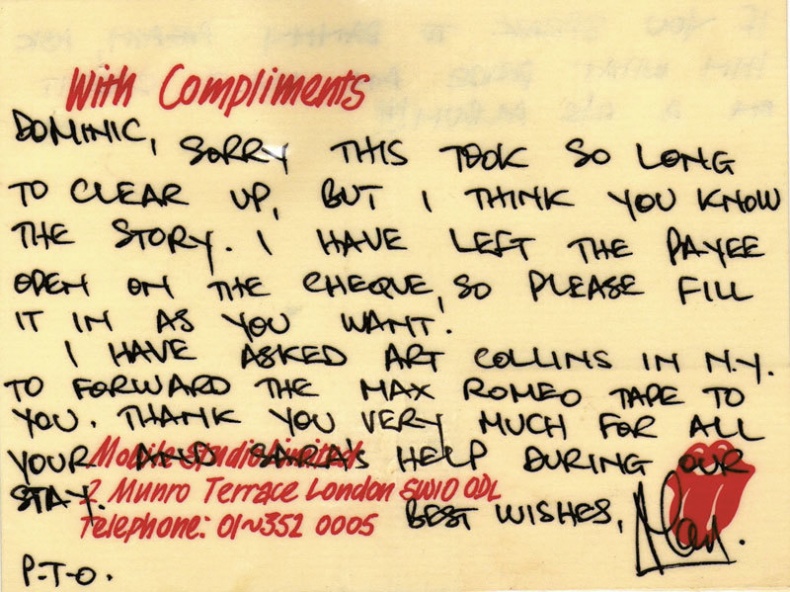 With Compliments
DOMINIC, SORRY THIS TOOK SO LONG
TO CLEAR UP, BUT I THINK YOU KNOW
THE STORY. I HAVE LEFT THE PAYEE
OPEN ON THE CHEQUE, SO PLEASE FILL
IT IN AS YOU WANT.
I HAVE ASKED ART COLLINS IN N.Y.
TO FORWARD THE MAX ROMEO TAPE TO
YOU. THANK YOU VERY MUCH FOR ALL
YOUR AND SARA'S HELP DURING OUR
STAY.
Mobile Studio Limited
2 Munro Terrace London SW10 0DL
Telephone: 01~352 0005
BEST WISHES,
P.T.O.